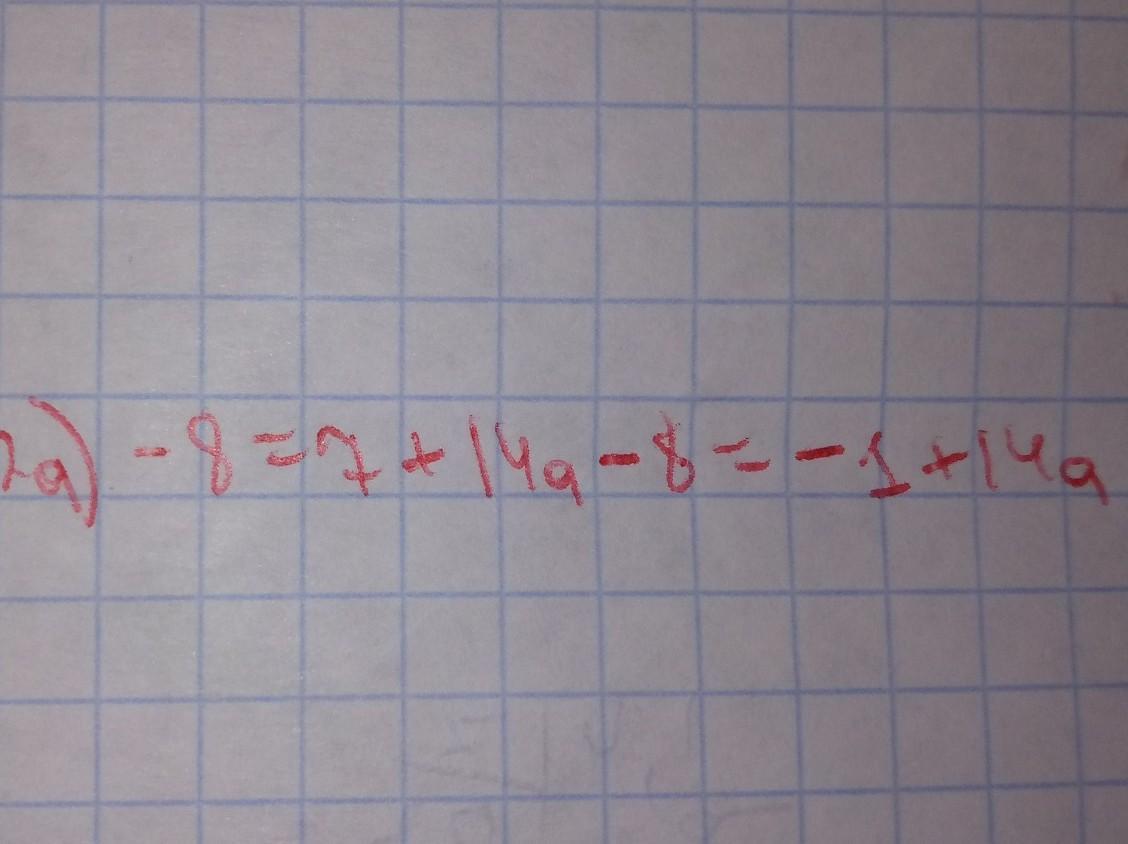 2a) - 8 = 7 + 14a - 8 = - 1 + 14a